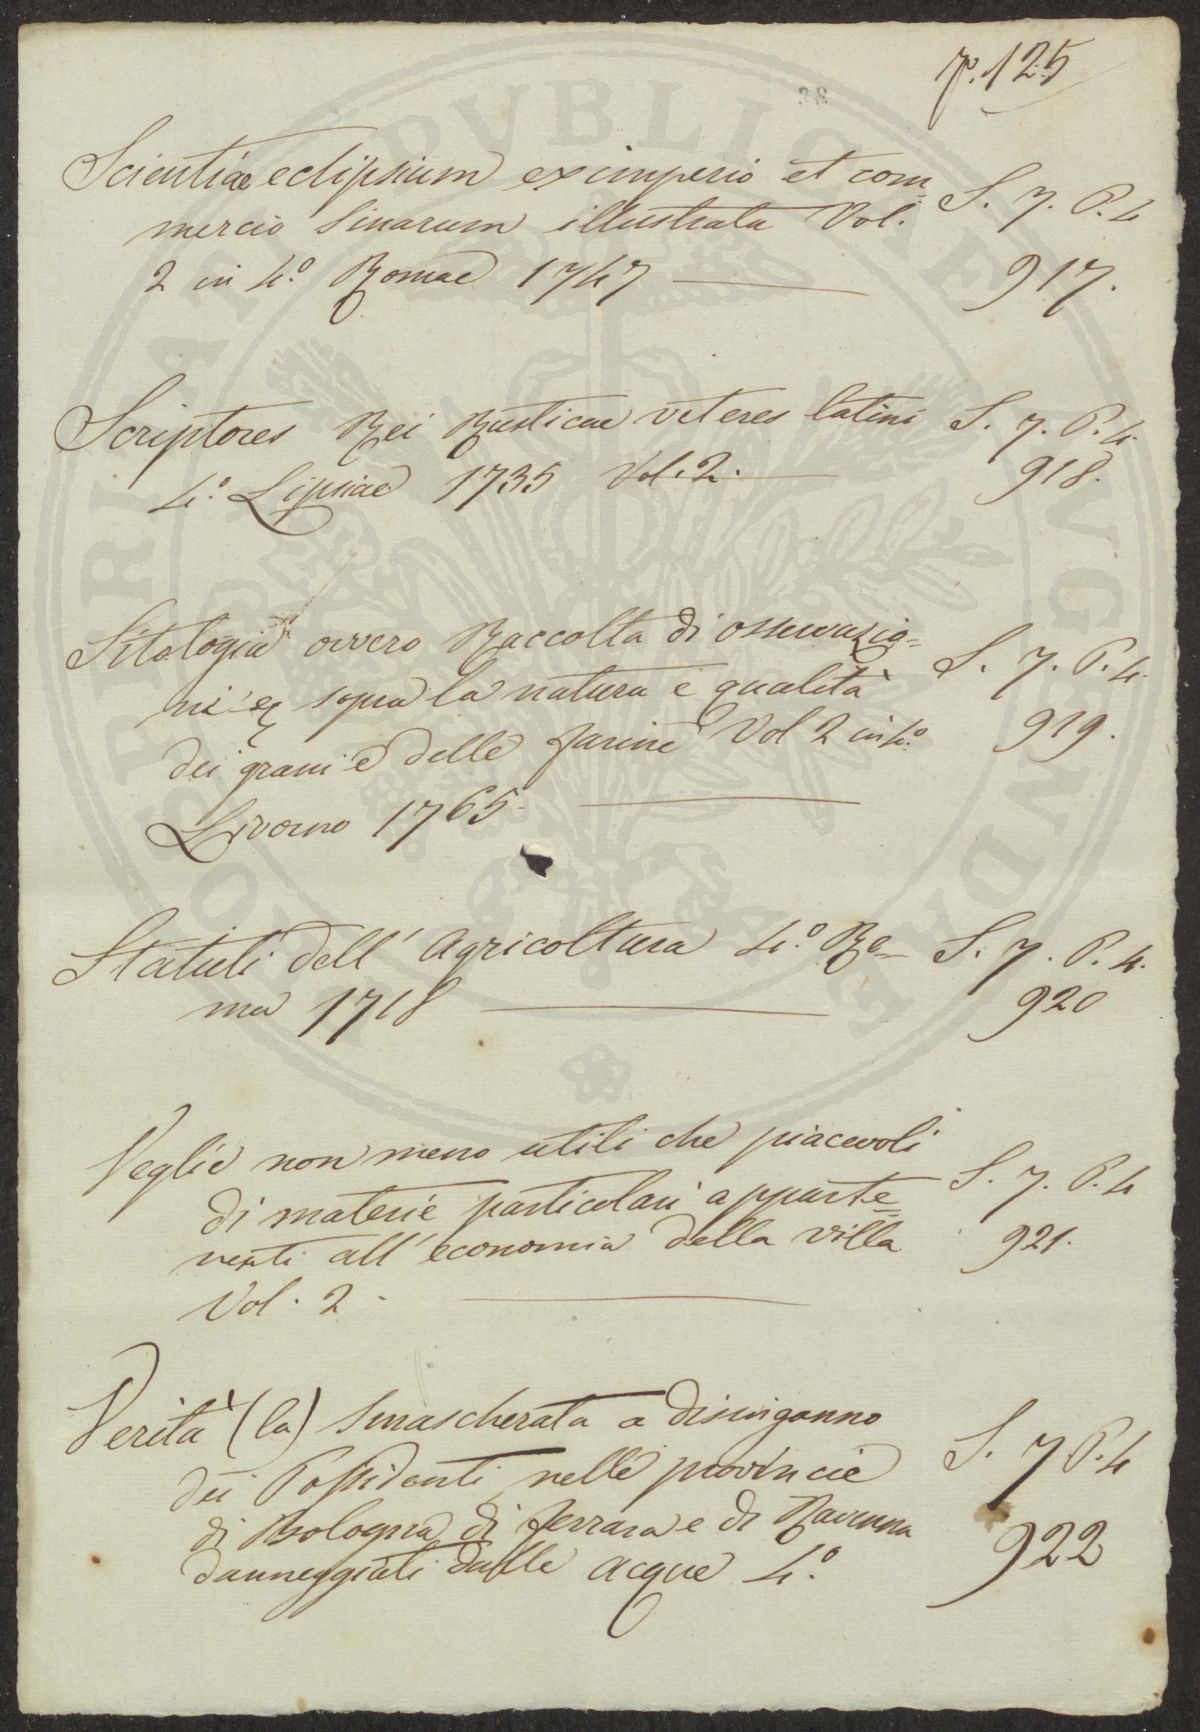 p. 125
Scientiae eclipsium ex imperio et com=
mercio Sinarum illustrata Vol.
2 in 4.º Romae 1747
S. 7. P. 4
917.
Scriptores Rei Rusticae veteres latini
4.º Lipsiae 1735 Vol. 2.
S. 7. P. 4.
918.
Sitologia ovvero Raccolta di osservazio=
ni sopra la natura e qualità
dei grani e delle farine Vol 2 in 4.º
Livorno 1765.
S. 7. P. 4.
919.
Statuti dell' Agricoltura 4.º Ro=
ma 1718
S. 7. P. 4.
920
Veglie non meno utili che piacevoli
di materie particolari apparte=
nenti all' economia della villa
Vol. 2.
S. 7. P. 4
921.
Verità (la) smascherata a disinganno
dei Possidenti nelle provincie
di Bologna di ferrara e di Ravenna
danneggiati dalle acque 4.º
S. 7 P. 4
922